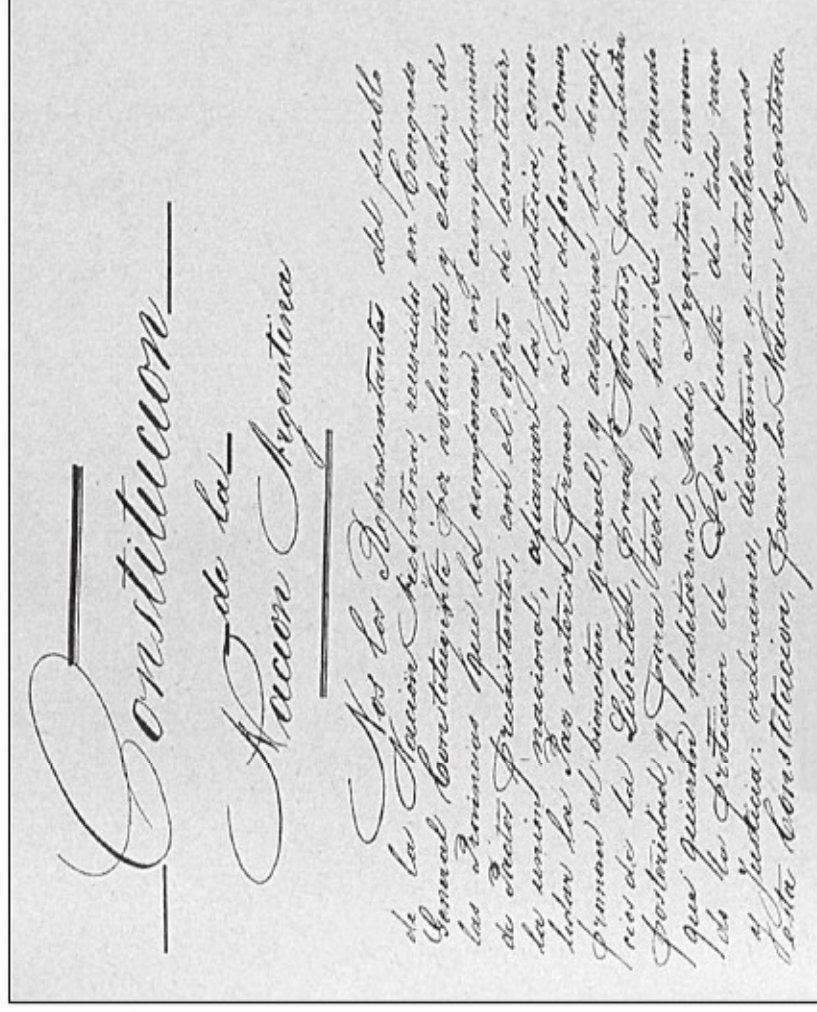 Constitucion
de la
Nacion Argentina
Nos los Representantes del pueblo
de la Nacion Argentina, reunidos en Congreso
General Constituyente por voluntad y eleccion de
las Provincias que la componen, en cumplimiento
de Pactos preexistentes, con el objeto de constituir
la union nacional, afianzar la justicia, conso-
lidar la Paz interior, proveer á la defensa comun,
promover el bienestar general, y asegurar los benefi-
cios de la Libertad, para Nosotros, para nuestra
posteridad, y para todos los hombres del mundo
que quieran habitar en el suelo Argentino: invocan-
do la proteccion de Dios, fuente de toda razon
y justicia: ordenamos, decretamos y establecemos
esta Constitucion, para la Nacion Argentina.